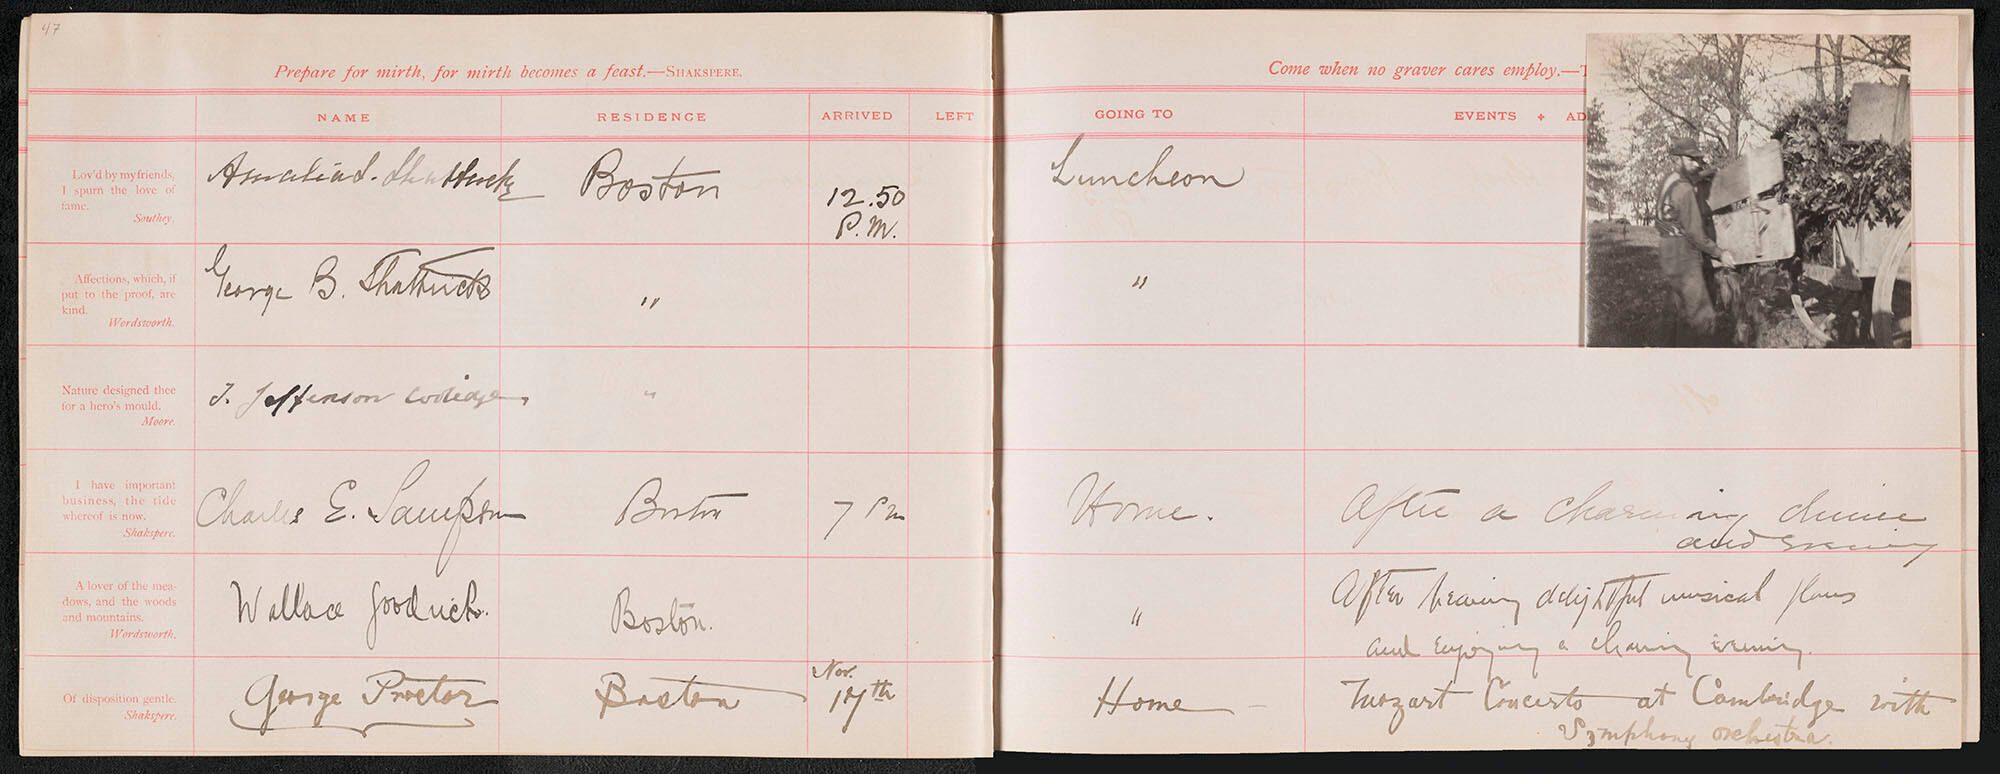 47
Prepare for mirth, for mirth becomes a feast.—SHAKSPERE.
NAME RESIDENCE ARRIVED LEFT
Lov'd by my friends,
I spurn the love of
fame.
Southey.
Shattuck Boston 12.50
P.M.
Affections, which, if
put to the proof, are
kind.
Wordsworth.
George B. Shattuck "
Nature designed thee
for a hero's mould.
Moore.
T. Jefferson Coolidge, "
I have important
business, the tide
whereof is now.
Shakspere.
Charles E. Sampson Boston 7 Pm
A lover of the mea-
dows, and the woods
and mountains.
Wordsworth.
Wallace Goodrich. Boston.
Of disposition gentle.
Shakspere.
George Proctor Boston Nov.
17th
Come when no graver cares employ.—T
GOING TO EVENTS + AD
Luncheon
"
Home. After a charming dinner
and evening
" After hearing delightful musical plans
and enjoying a charming evening.
Home Mozart Concerto at Cambridge with
Symphony orchestra.